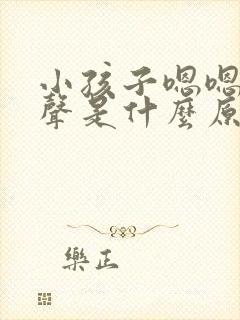 小孩子嗯嗯
聲是什麼原
樂正